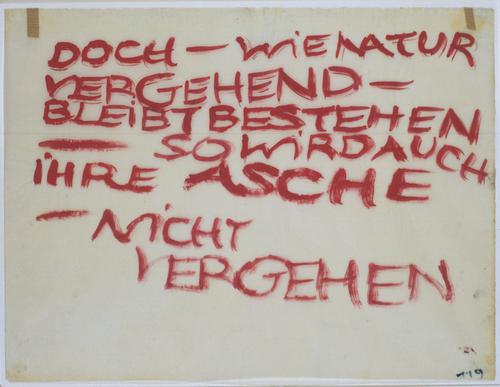 DOCH — WiE NATUR
VERGEHEND —
BLEiBT BESTEHEN
— SO WiRD AUCH
iHRE ASCHE
— NiCHT
VERGEHEN
119